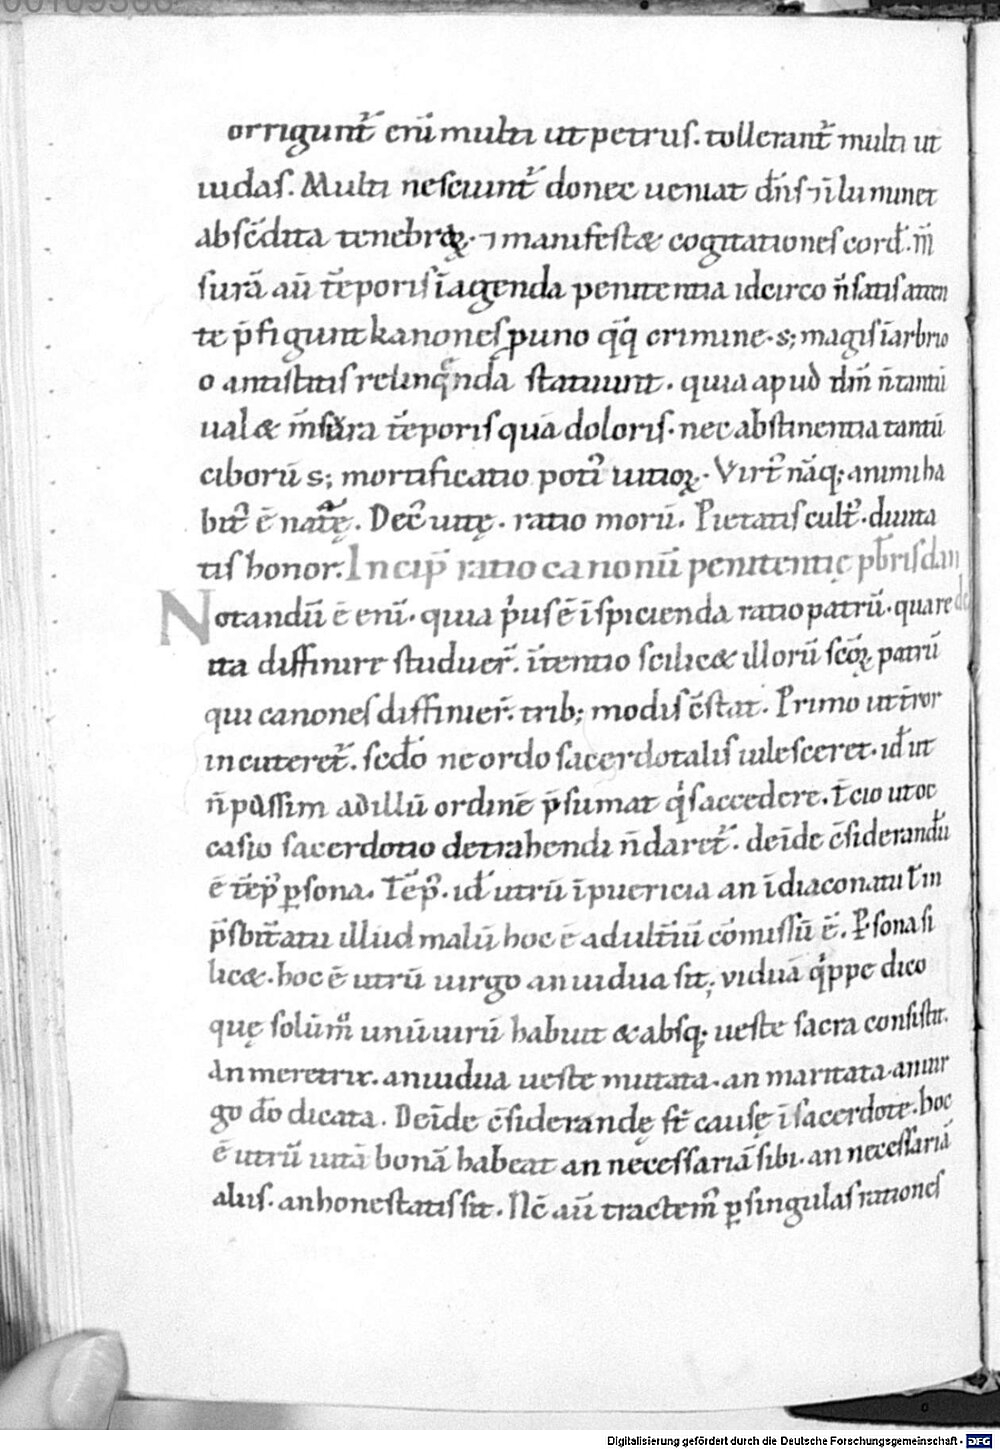 orrigunt̄ enī multi ut petrus. tollerant̄ multi ut
iudas. Multi nesciunt̄ donec ueniat dn̄s ⁊ īluminet
absc̄dita tenebrꝝ. ⁊ manifest& cogitationes cord̄. m̄
surā aū tēporis ī agenda penitentia idcirco n̄ satis atten
te p̄figunt kanones p uno q̄q̄ crimine. s; magis ī arbrio
o antistitis relinq̄nda statuunt. quia apud dm̄ n̄ tantū
ual& m̄sura tēporis quā doloris. nec abstinentia tantū
ciborū s; mortificatio potī uitioꝝ. Virt̄ nāq; animi ha
bit̄ ē natę. Dec̄ uitę. ratio morū. Pietatis cult̄. diuita
tis honor. Incip̄ ratio canonū penitentię pb̄ris dan
de
Notandū ē enī. quia p̄us ē īspicienda ratio patrū. quare
ita diffinire studuer̄. ītentio scilic& illorū sc̄oꝝ patrū
qui canones diffinier̄. trib; modis c̄stat. Primo ut t̄ror
incuteret̄. sec̄do ne ordo sacerdotalis uilesceret. id̄ ut
n̄ passim ad illū ordinē p̄sumat q̄s accedere. t̄cio ut oc
casio sacerdotio detrahendi n̄ daret̄. deīde c̄siderandū
ē tēp̄ ꝑsona. Tēp̄. id̄ utrū ī puericia an ī diaconatu t̄ in
p̄sbit̄atu illud malū hoc ē adult̄iū cōmissū ē. Psona si
lic&. hoc ē utrū uirgo an uidua sit; viduā q̄ppe dico
quę solūm̄ unū uirū habuit & absq; ueste sacra consistit.
An meretrix. an uidua ueste mutata. an maritata an uir
go dō dicata. Deīde c̄siderandę st̄ causę ī sacerdote. hoc
ē utrū uitā bonā habeat an necessariā sibi. an necessariā
aliis. an honestatis sit. Nc̄ aū tractem̄ ꝑ singulas rationes
Digitalisierung gefördert durch die Deutsche Forschungsgemeinschaft - DFG